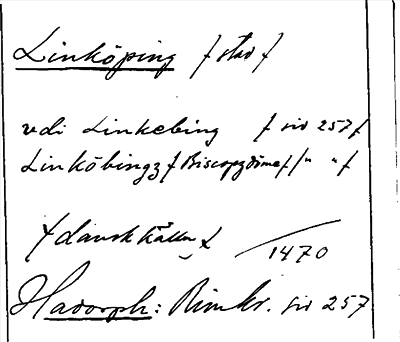 Linköping / stad /
vdi Linkebing / sid 257 /
Linköbingz / Biscopzdöme / / " " /
/ dansk källa / 1470
Hadorph: Rimkr. sid 257.